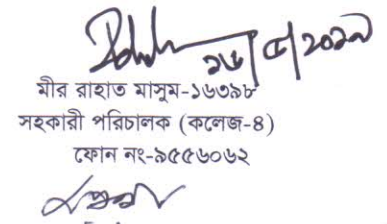 ১৬/৫/২০১৯
মীর রাহাত মাসুম-১৬৩৯৮
সহকারী পরিচালক (কলেজ-৪)
ফোন নং-৯৫৫৬০৬২